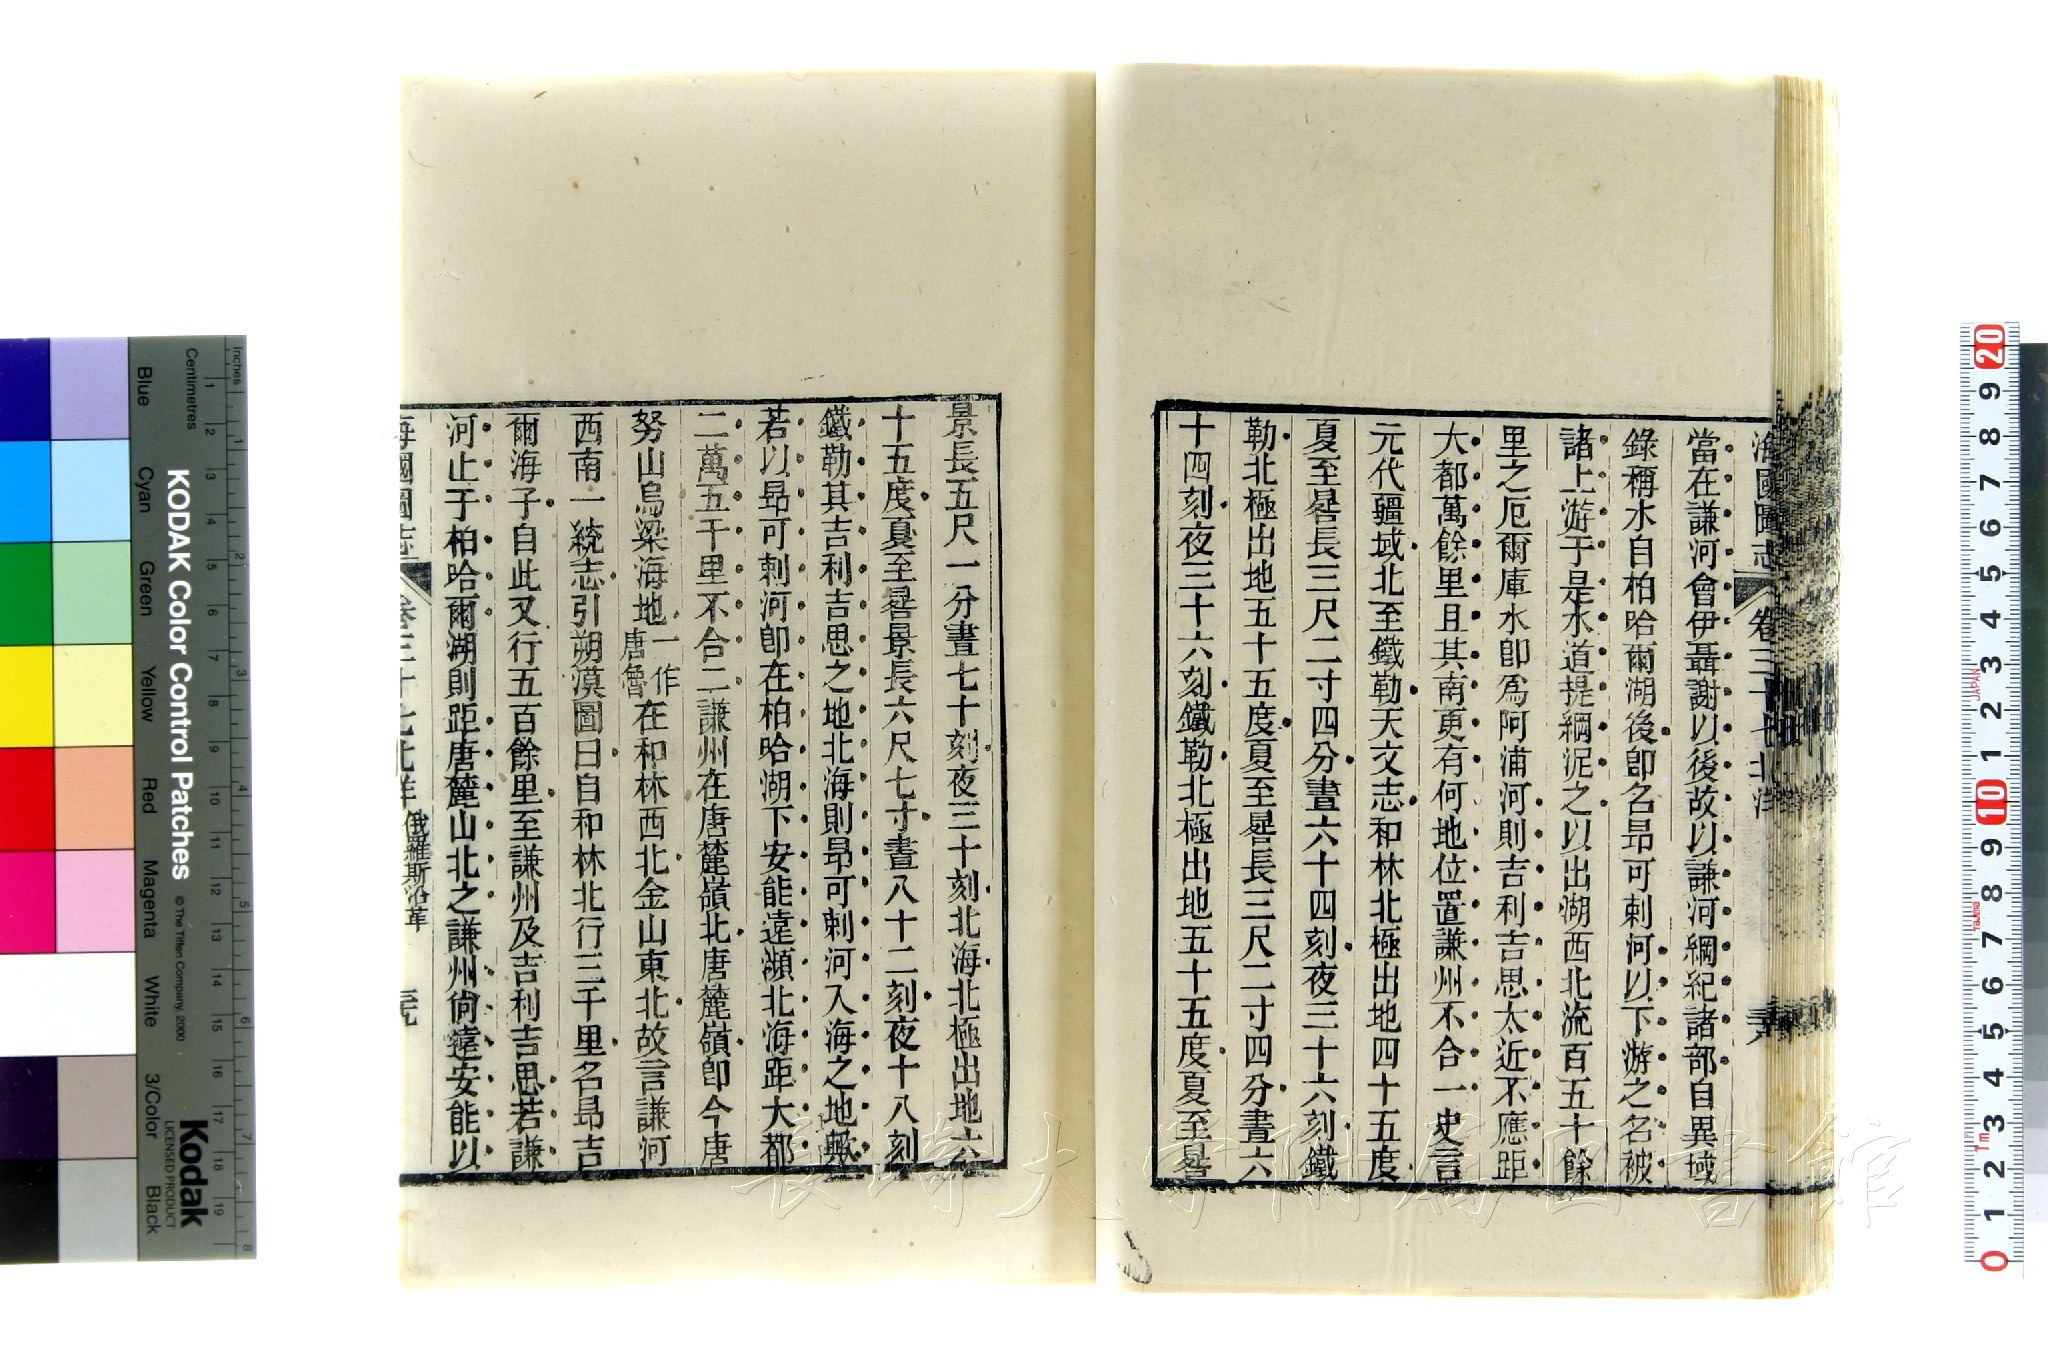 海國圖志 卷三十七 北洋
當在謙河會伊聶謝以後故以謙河綱紀諸部自異域
錄稱水自柏哈爾湖後卽名昻可剌河以下游之名被
諸上游于是水道提綱泥之以出湖西北流百五十餘
里之厄爾庫水卽爲阿浦河則吉利吉思太近不應距
大都萬餘里且其南更有何地位置謙州不合一史言
元代疆域北至鐵勒天文志和林北極出地四十五度
夏至晷長三尺二寸四分晝六十四刻夜三十六刻鐵
勒北極出地五十五度夏至晷長三尺二寸四分晝六
十四刻夜三十六刻鐵勒北極出地五十五度夏至晷
景長五尺一分晝七十刻夜三十刻北海北極出地六
十五度夏至晷景長六尺七寸晝八十二刻夜十八刻
鐵勒其吉利吉思之地北海則昻可剌河入海之地
若以昻可剌河卽在柏哈湖下安能遠瀕北海距大都
二萬五千里不合二謙州在唐麓嶺北唐麓嶺卽今唐
努山烏梁海地一作唐魯在和林西北金山東北故言謙河
西南一統志引朔漠圖曰自和林北行三千里名昻吉
爾海子自此又行五百餘里至謙州及吉利吉思若謙
河止于柏哈爾湖則距唐麓山北之謙州尙遠安能以
海國圖志 卷三十七 北洋 俄羅斯沿革
KODAK Color Control Patches
© The Tiffen Company, 2000
Kodak
LICENSED PRODUCT
Inches
Centimetres
Blue
Cyan
Green
Yellow
Red
Magenta
White
3/Color
Black
1 2 3 4 5 6 7 8
1 2 3 4 5 6 7 8 9 10 11 12 13 14 15 16 17 18 19
20 9 8 7 6 5 4 3 2 1 10 9 8 7 6 5 4 3 2 1 0
JAPAN
長崎大学附属図書館